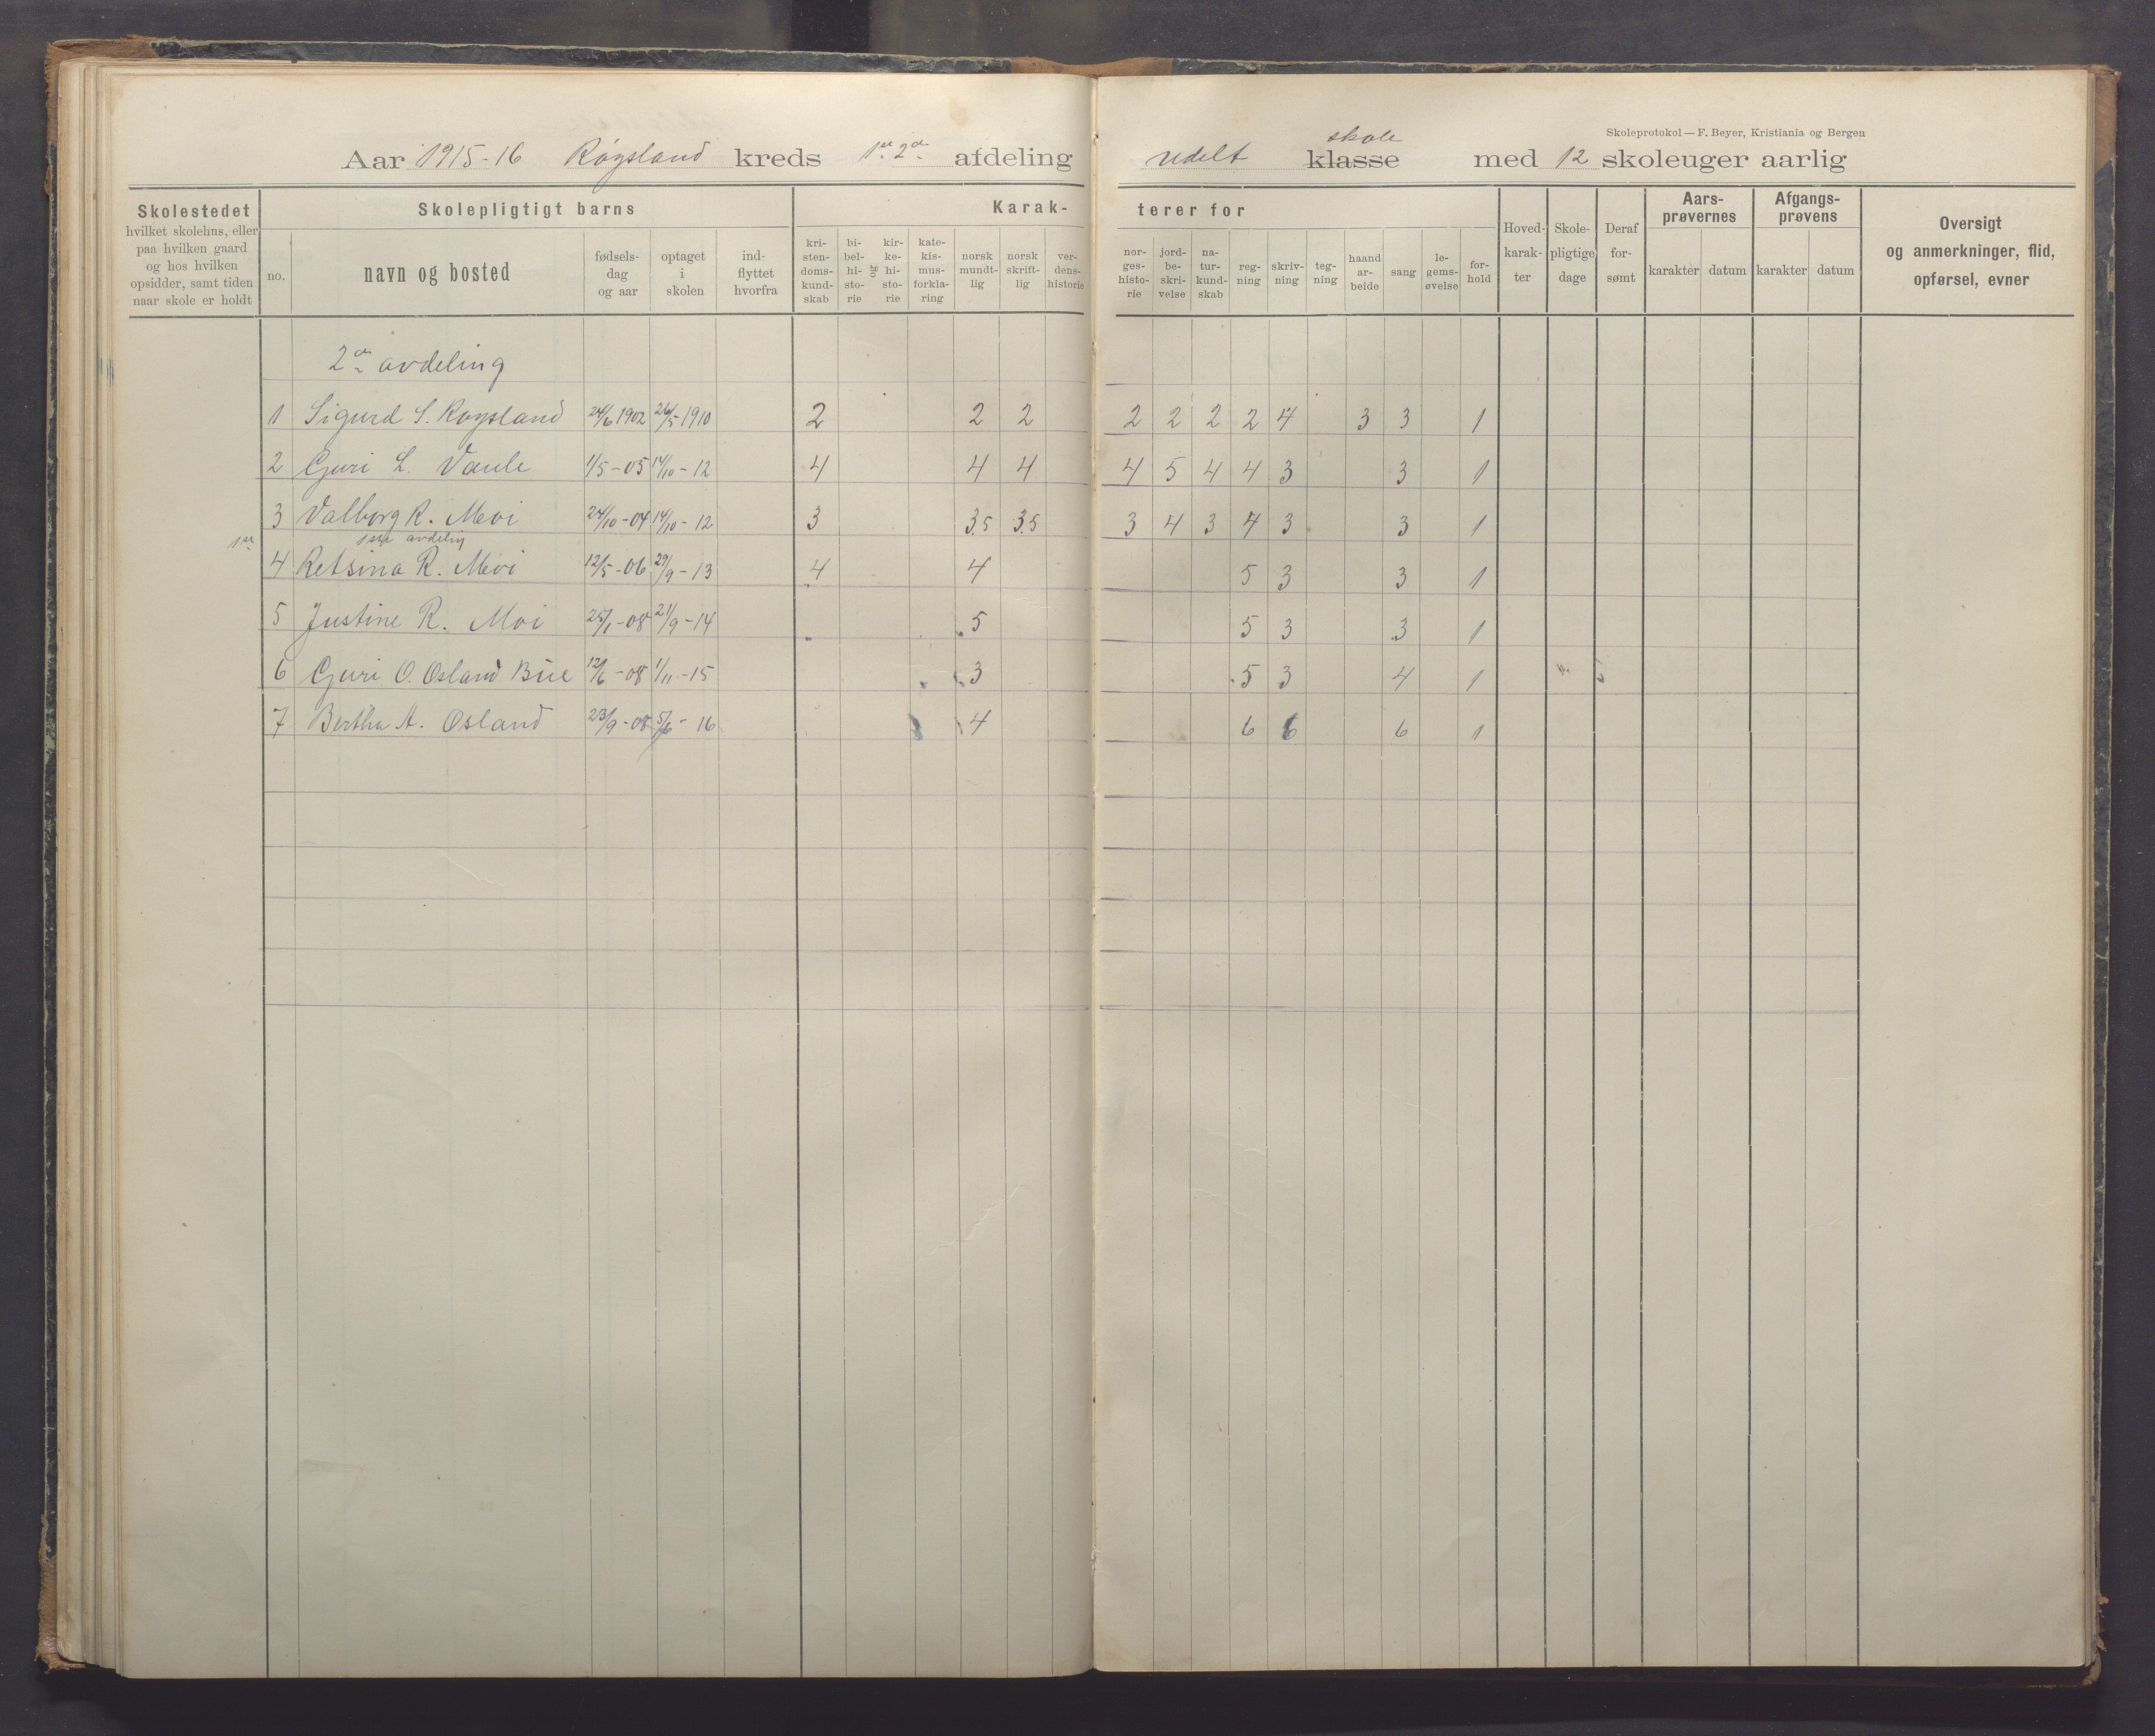 Skoleprotokol — F. Beyer, Kristiania og Bergen
Aar 1915-16 Røysland kreds 1ste 2den afdeling udelt klasse skole med 12 skoleuger aarlig
Skolestedet
hvilket skolehus, eller
paa hvilken gaard
og hos hvilken
opsidder, samt tiden
naar skole er holdt
Skolepligtigt barns
no.
navn og bosted
fødsels-
dag
og aar
optaget
i
skolen
ind-
flyttet
hvorfra
Karak-
kri-
sten-
doms-
kund-
skab
bi-
bel-
hi-
sto-
rie
og
kir-
ke-
hi-
sto-
rie
kate-
kis-
mus-
forkla-
ring
norsk
mundt-
lig
norsk
skrift-
lig
ver-
dens-
historie
terer for
nor-
ges-
histo-
rie
jord-
be-
skri-
velse
na-
tur-
kund-
skab
reg-
ning
skriv-
ning
teg-
ning
haand
ar-
beide
sang
le-
gems-
øvelse
for-
hold
Hoved-
karak-
ter
Skole-
pligtige
dage
Deraf
for-
sømt
Aars-
prøvernes
karakter datum
Afgangs-
prøvens
karakter datum
Oversigt
og anmerkninger, flid,
opførsel, evner
2den avdeling
1 Sigurd S. Røysland 24/6 1902 26/5 1910 2 2 2 2 2 2 2 4 3 3 1
2 Guri L. Vaule 1/5-05 14/10-12 4 4 4 4 5 4 4 3 3 1
3 Valborg R. Moi 24/10-04 14/10-12 3 3.5 3.5 3 4 3 4 3 3 1
1ste 1ste avdeling
4 Retsina R. Moi 12/5-06 29/9-13 4 4 5 3 3 1
5 Justine R. Moi 25/1-08 21/9-14 5 5 3 3 1
6 Guri O. Osland Bue 12/6-08 1/11-15 3 5 3 4 1
7 Bertha A. Osland 23/9-08 5/6-16 4 6 6 6 1